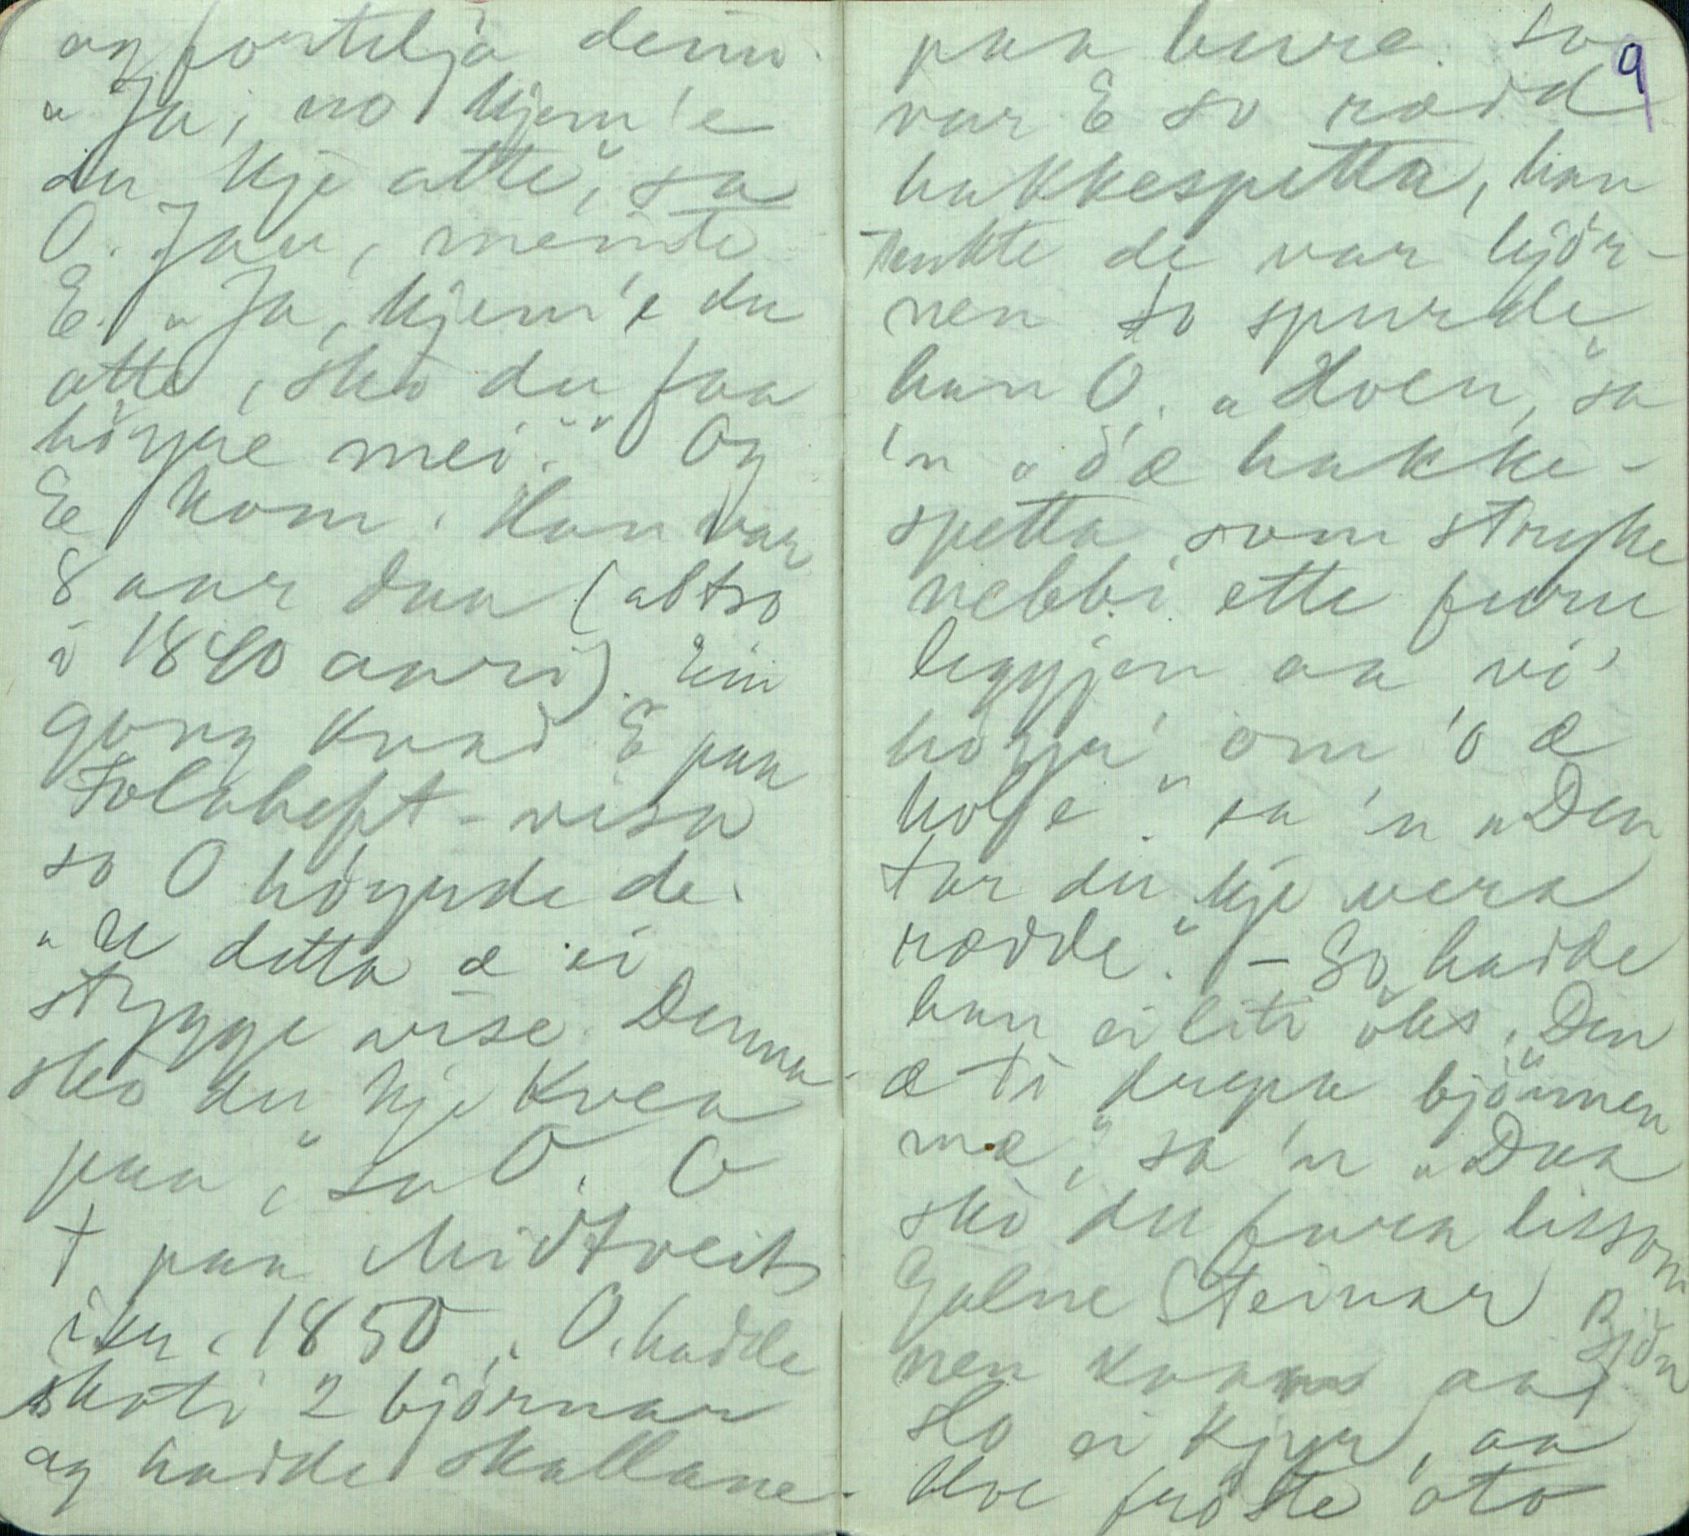 og fortelja deim.
"Ja, no kjem'e
du kje atte", sa
O. Jau, meinte
E. "Ja, kjem'e du
atte, sko du faa
höyre mei." Og
E kom. Han var
8 aar daa (altso
i 1840 aari). Ein
gong kvad E paa
Folaheft-visa
so O höyrde de.
"U detta æ ei
stygge vise. Denna
sko du kje kvea
paa", sa O. O
† paa Midtveit
ikr. 1850. O. hadde
skoti 2 björnar
og hadde skallane
9
paa bure. So
var E so rædd
hakkespetta, han
tenkte de var björ-
nen so spurde
han O. "Hoen," sa
'n "d'æ hakke-
spetta som stryke
nebbi ette furu
leggjen aa vi'
höyra' om 'o æ
hole" sa 'n "Den
tar du kje vera
rædde." – So hadde
han ei liti öks. "Den
æ ti drepa björnnen
mæ," sa 'n "Daa
sko du fara lissom
Galne Steinar Björn
nen kaam aa
slo ei kjyr, aa
Uve fröste oto